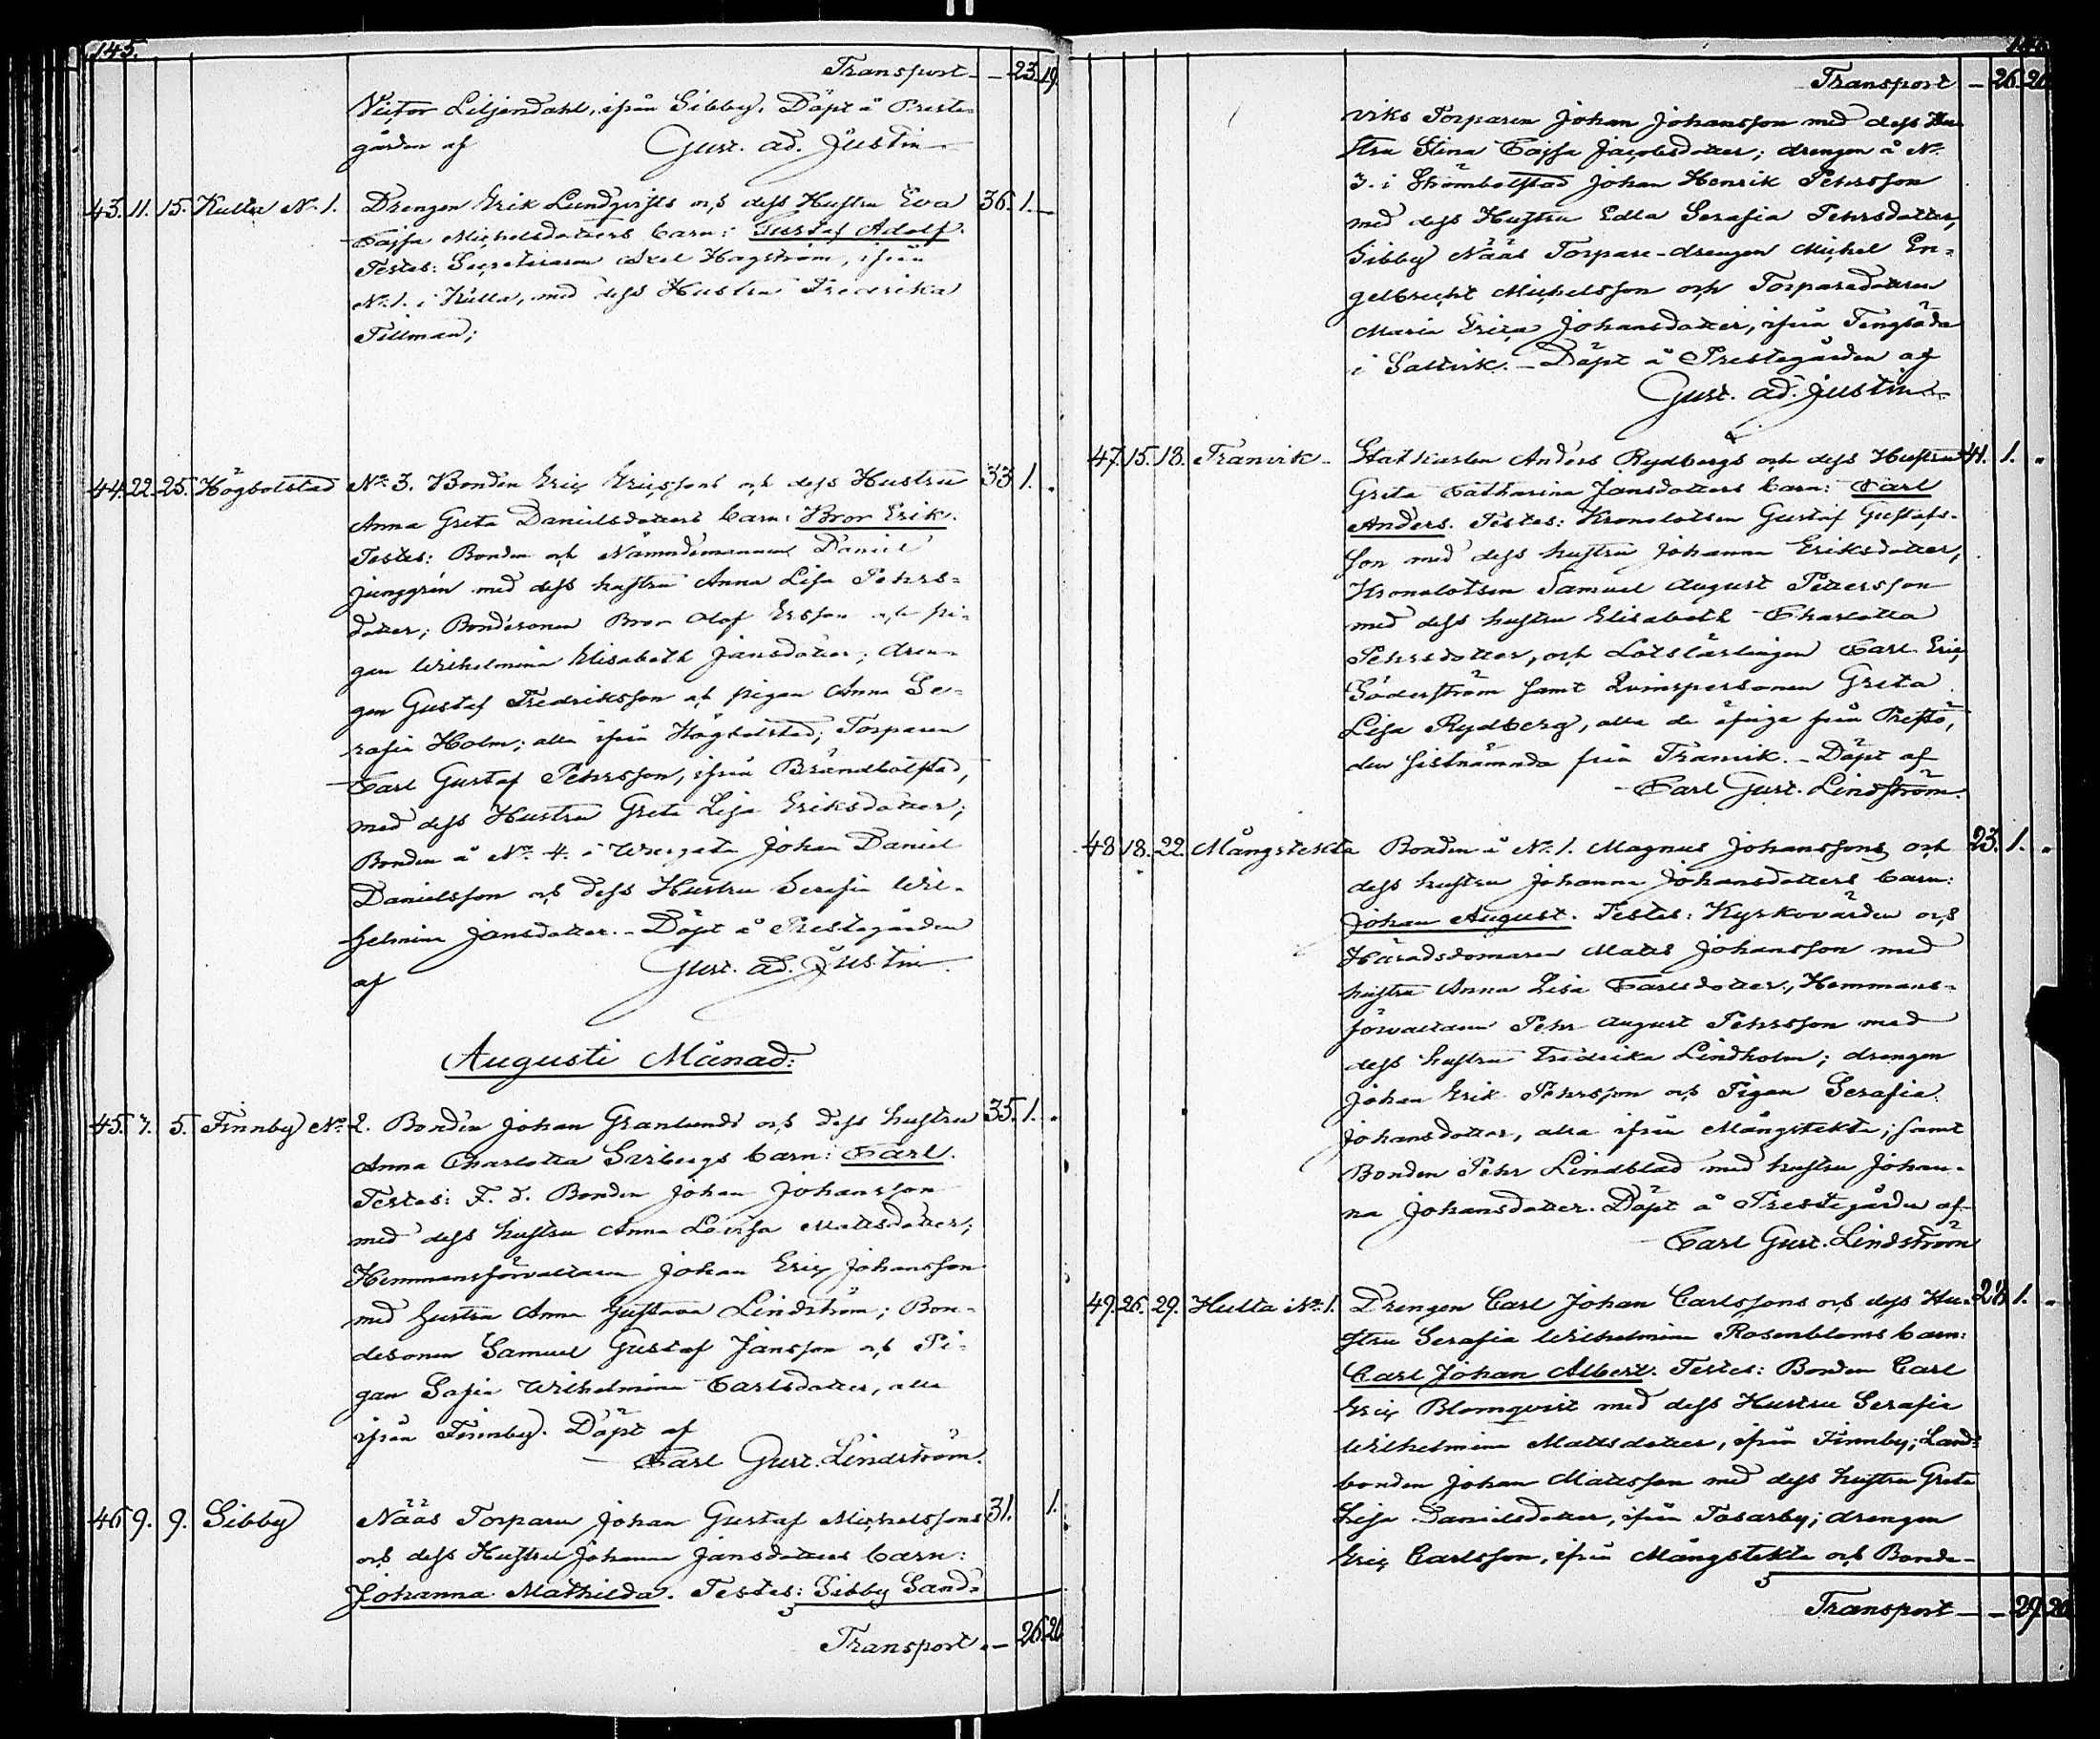 145.
Transport — 23. 19.
Victor Liljendahl, ifrån Sibby. Döpt å Preste-
gården af Gust. ad. Justin
43. 11. 15. Kulla No 1. Drengen Erik Lundqvists och dess Hustru Eva 36. 1. —
Cajsa Michelsdotters barn: Gustaf Adolf.
Testes: Secreteraren Axel Hagström, ifrån
No 1. i Kulla, med dess Hustru Fredrika
Tillman;
44. 22. 25. Högbolstad No 3. Bonden Eric Ericssons och dess Hustru 33 1. "
Anna Greta Danielsdotters barn: Bror Erik.
Testes: Bonden och Nämndemannen Daniel
Junggrén med dess hustru Anna Lisa Pehrs-
dotter; Bondesonen Bror Olof Ersson och pi-
gan Wilhelmina Elisabeth Jansdotter; dren-
gen Gustaf Fredriksson och pigan Anna Se-
rafia Holm; alla ifrån Högbolstad; Torparen
Carl Gustaf Pehrsson, ifrån Brändbolstad,
med dess Hustru Greta Lisa Eriksdotter;
Bonden å No 4. i Wargata Johan Daniel
Danielsson och dess Hustru Serafia Wil-
helmina Jansdotter. – Döpt å Prestegården
af Gust. ad. Justin.
Augusti Månad:
45. 1. 5. Finnby No 2. Bonden Johan Granlunds och dess hustru 35. 1. "
Anna Charlotta Sirbergs barn: Carl.
Testes: F. d. Bonden Johan Johansson
med dess hustru Anna Lovisa Mattsdotter;
Hemmansförvaltaren Johan Eric Johansson
med hustru Anna Gustava Lindström; Bon-
desonen Samuel Gustaf Jansson och Pi-
gan Sofia Wilhelmina Carlsdotter, alla
ifrån Finnby. Döpt af
Carl Gust. Lindström.
46 9. 9. Sibby Nääs Torparen Johan Gustaf Michelssons 31. 1.
och dess Hustru Johanna Jansdotters barn:
Johanna Mathilda. Testes: Sibby Sand-
Transport. — 26. 20
Transport — 26. 20
viks Torparen Johan Johansson med dess Hu-
stru Stina Cajsa Jacobsdotter; drengen å No
3. i Strömbolstad Johan Henrik Pehrsson
med dess Hustru Edla Serafia Pehrsdotter,
Sibby Nääs Torpare-drengen Michel En-
gelbrecht Michelsson och Torparedottren
Maria Erica Johansdotter, ifrån Tengsöda
i Saltvik. – Döpt å Prestegården af
Gust. ad. Justin
47. 15. 18. Tranvik – Statkarlen Anders Rydbergs och dess Hustru 41. 1. "
Greta Catharina Jansdotters barn: Carl
Anders. Testes: Kronolotsen Gustaf Gustafs-
son med dess hustru Johanna Eriksdotter,
Kronolotsen Samuel August Pettersson
med dess hustru Elisabeth Charlotta
Pehrsdotter, och Lotslärlingen Carl Eric
Söderström samt Qvinspersonen Greta
Lisa Rydberg, alla de öfriga från Prestö,
den sistnämnda från Tranvik. – Döpt af
Carl Gust. Lindström.
48 18. 22. Mångstekta Bonden å No 1. Magnus Johanssons och 23. 1. "
dess hustru Johanna Johansdotters barn:
Johan August. Testes: Kyrkovärden och
Häradsdomaren Matts Johansson med
hustru Anna Lisa Carlsdotter, Hemmans-
förvaltaren Pehr August Pehrsson med
dess hustru Fredrika Lindholm; drengen
Johan Erik Pehrsson och Pigan Serafia
Johansdotter, alla ifrån Mångstekta; samt
Bonden Pehr Lindblad med hustru Johan-
na Johansdotter. Döpt å Prestegården af
Carl Gust. Lindström
49. 26. 29. Hulta No 1. Drengen Carl Johan Carlssons och dess Hu- 28. 1. "
stru Serafia Wilhelmina Rosenbloms barn:
Carl Johan Albert. Testes: Bonden Carl
Eric Blomqvist med dess Hustru Serafia
Wilhelmina Mattsdotter, ifrån Finnby; Land-
bonden Johan Mattsson med dess hustru Greta
Lisa Danielsdotter, ifrån Tosarby; drengen
Eric Carlsson, ifrån Mångstekta och Bonde-
Transport — — 29. 20